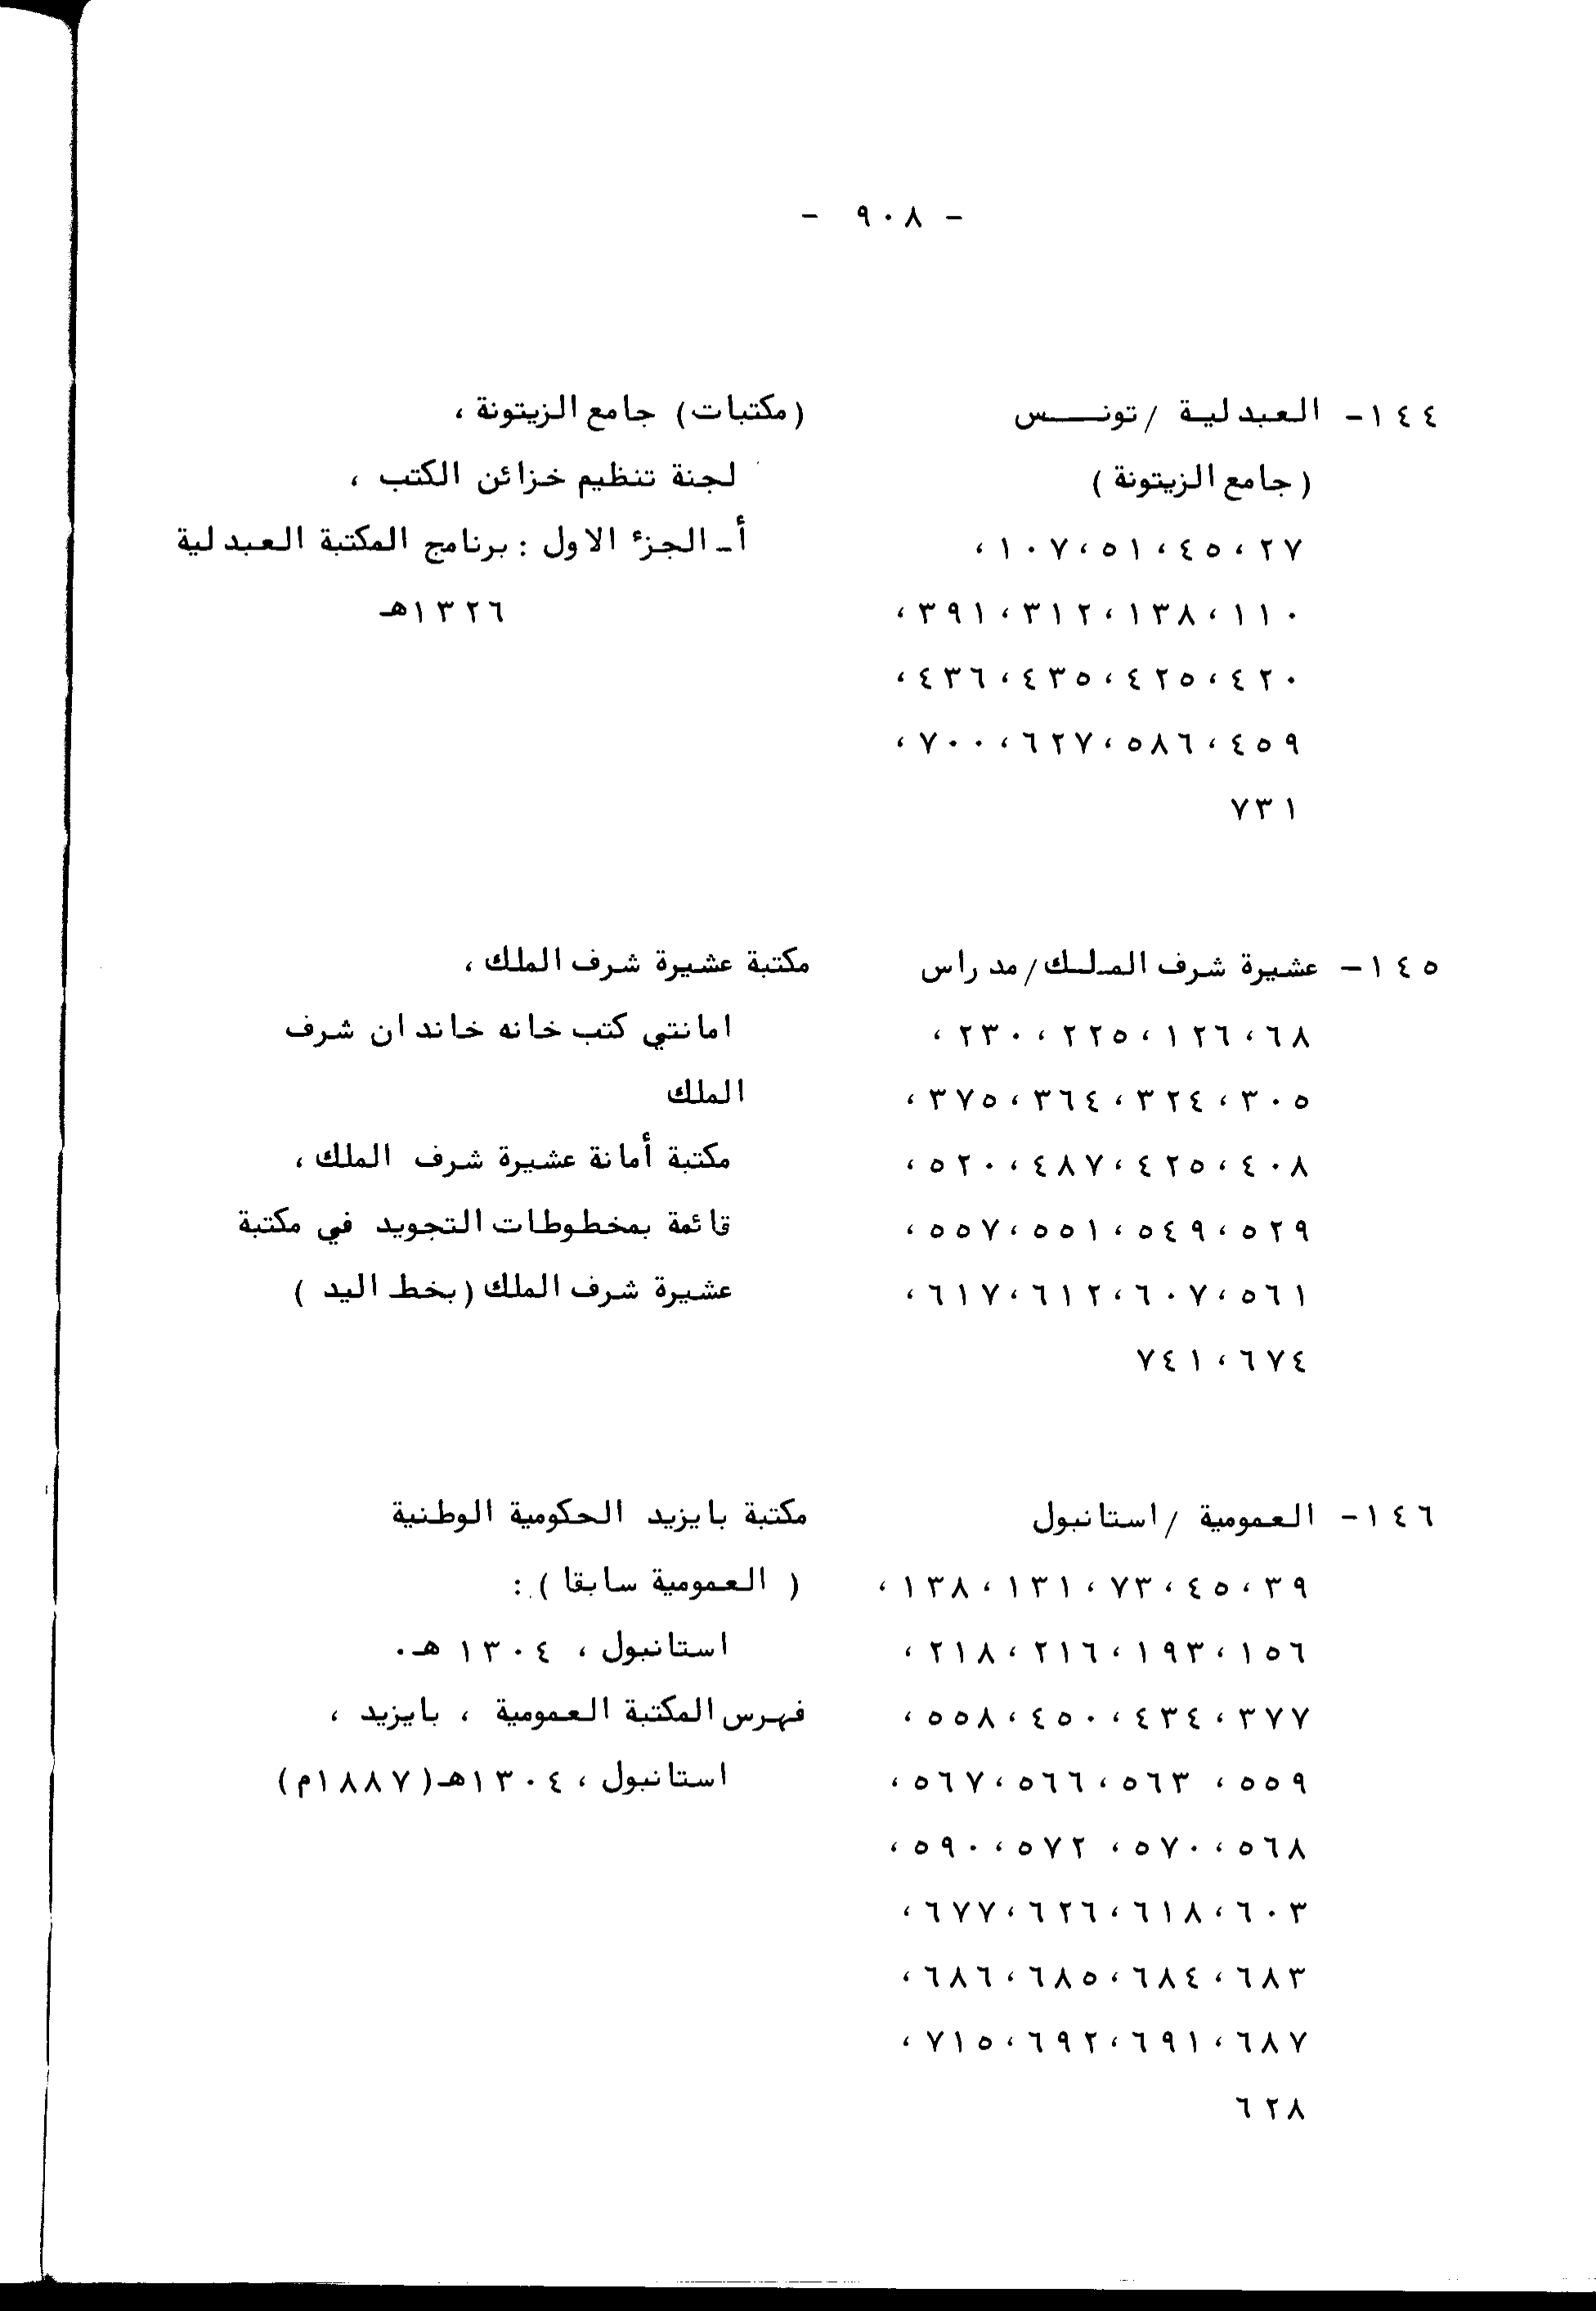 - ٩٠٨ -
١٤٤- العبدلية / تونس
(جامع الزيتونة)
٢٧، ٤٥، ٥١، ١٠٧،
١١٠، ١٣٨، ٣١٢، ٣٩١،
٤٢٠، ٤٢٥، ٤٣٥، ٤٣٦،
٤٥٩، ٥٨٦، ٦٢٧، ٧٠٠،
٧٣١
(مكتبات) جامع الزيتونة،
لجنة تنظيم خزائن الكتب،
أ- الجزء الاول : برنامج المكتبة العبدلية
١٣٢٦هـ
١٤٥- عشيرة شرف الملك/مدراس
٦٨، ١٢٦، ٢٢٥، ٢٣٠،
٣٠٥، ٣٢٤، ٣٦٤، ٣٧٥،
٤٠٨، ٤٢٥، ٤٨٧، ٥٢٠،
٥٢٩، ٥٤٩، ٥٥١، ٥٥٧،
٥٦١، ٦٠٧، ٦١٢، ٦١٧،
٦٧٤، ٧٤١
مكتبة عشيرة شرف الملك،
امانتي كتب خانه خاندان شرف
الملك
مكتبة أمانة عشيرة شرف الملك،
قائمة بمخطوطات التجويد في مكتبة
عشيرة شرف الملك (بخط اليد)
١٤٦- العمومية / استانبول
٣٩، ٤٥، ٧٣، ١٣١، ١٣٨،
١٥٦، ١٩٣، ٢١٦، ٢١٨،
٣٧٧، ٤٣٤، ٤٥٠، ٥٥٨،
٥٥٩، ٥٦٣، ٥٦٦، ٥٦٧،
٥٦٨، ٥٧٠، ٥٧٢، ٥٩٠،
٦٠٣، ٦١٨، ٦٢٦، ٦٧٧،
٦٨٣، ٦٨٤، ٦٨٥، ٦٨٦،
٦٨٧، ٦٩١، ٦٩٢، ٧١٥،
٦٢٨
مكتبة بايزيد الحكومية الوطنية
(العمومية سابقا) :
استانبول، ١٣٠٤ هـ.
فهرس المكتبة العمومية، بايزيد،
استانبول، ١٣٠٤هـ (١٨٨٧م)